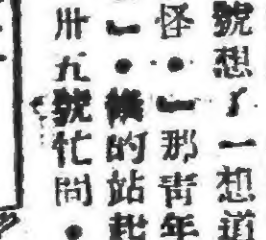 號想了一想道
怪・」那青年
」・的站起
卅五號忙問・